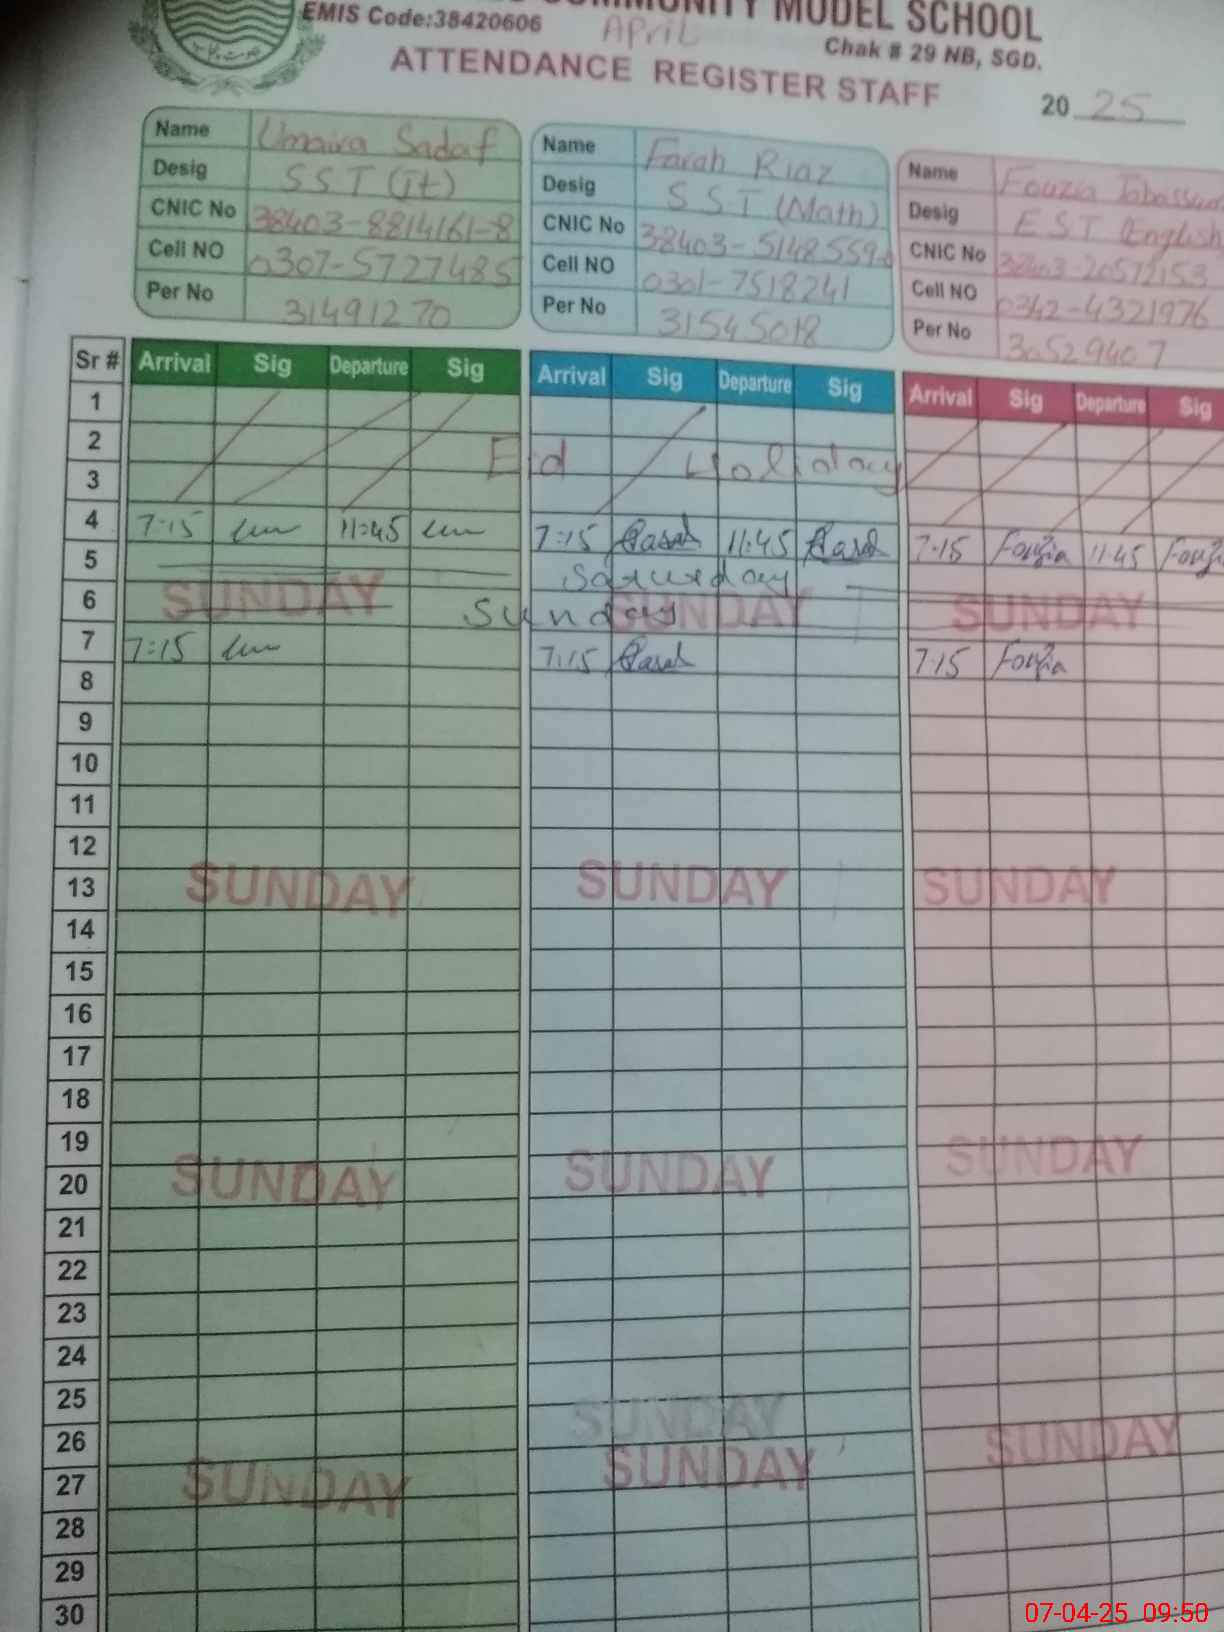 COMMUNITY MODEL SCHOOL
EMIS Code:38420606
April
Chak # 29 NB, SGD.
ATTENDANCE REGISTER STAFF
2025
Name Umaira Sadaf
Desig SST (it)
CNIC No 38403-8814161-8
Cell NO 0307-5727485
Per No 31491270
Name Farah Riaz
Desig SST (Math)
CNIC No 38403-5148559-
Cell NO 0301-7518241
Per No 31545018
Name Fouzia Tabassum
Desig EST (English
CNIC No 38403-20572153
Cell NO 0342-4321976
Per No 30529407
Sr # Arrival Sig Departure Sig Arrival Sig Departure Sig Arrival Sig Departure Sig
1
2 Eid Holiday
3
4 7:15 11:45 7:15 Farah 11:45 Farah 7:15 Fouzia 11:45 Fouzia
5 Saturday
6 SUNDAY Sunday SUNDAY SUNDAY
7 7:15 7:15 Farah 7:15 Fouzia
8
9
10
11
12
13 SUNDAY SUNDAY SUNDAY
14
15
16
17
18
19 SUNDAY
20 SUNDAY SUNDAY
21
22
23
24
25 SUNDAY
26 SUNDAY SUNDAY
27 SUNDAY
28
29
30
07-04-25 09:50